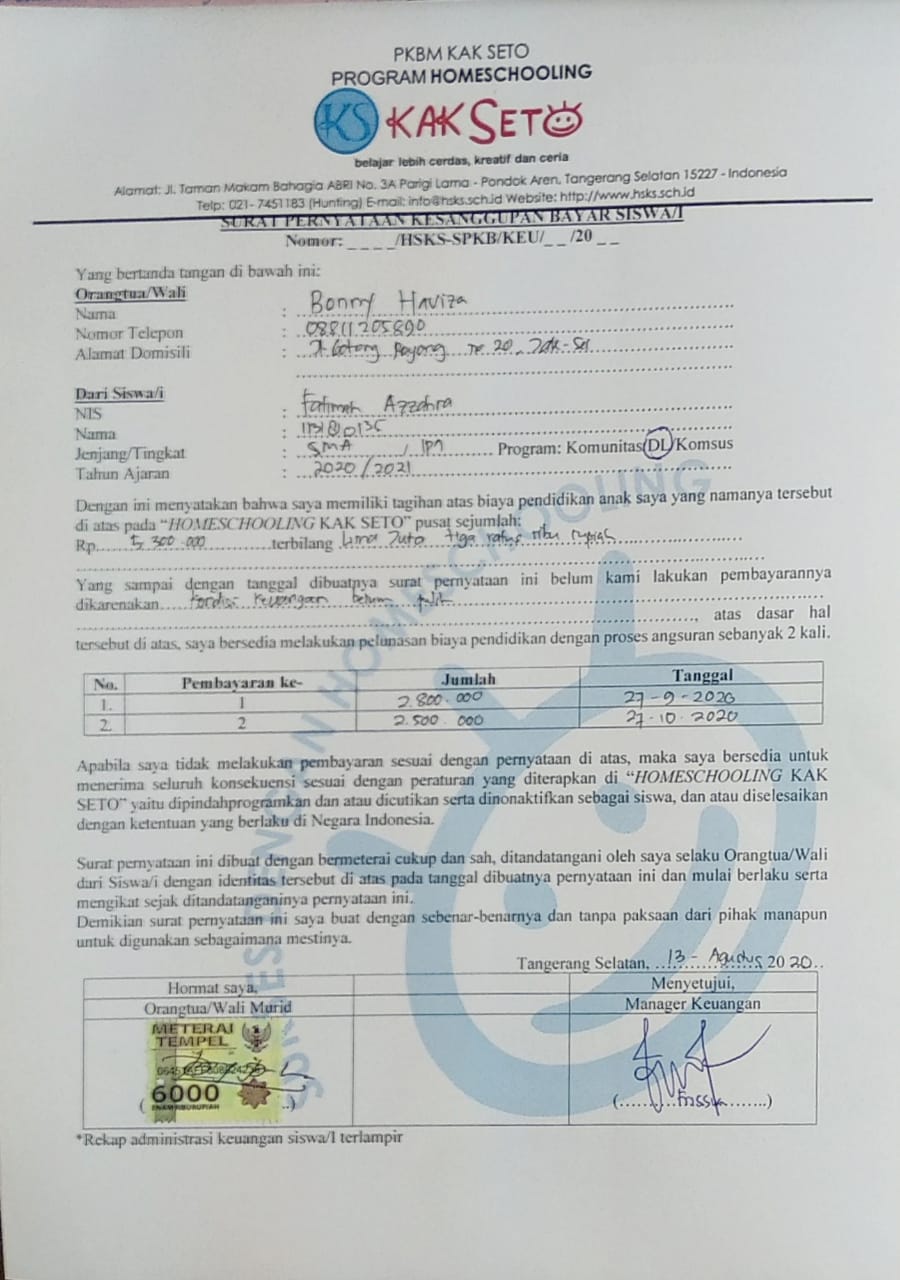 PKBM KAK SETO
PROGRAM HOMESCHOOLING
KS KAK SETO
belajar lebih cerdas, kreatif dan ceria
Alamat: Jl. Taman Makam Bahagia ABRI No. 3A Parigi Lama - Pondok Aren, Tangerang Selatan 15227 - Indonesia
Telp: 021- 7451183 (Hunting) E-mail: info@hsks.sch.id Website: http://www.hsks.sch.id
SURAT PERNYATAAN KESANGGUPAN BAYAR SISWA/I
Nomor: _ _ _ _/HSKS-SPKB/KEU/_ _ /20 _ _
Yang bertanda tangan di bawah ini:
Orangtua/Wali
Nama : Bonny Haviza
Nomor Telepon : 08811205890
Alamat Domisili : Jl Gotong Royong No 20, Jak-Sel
Dari Siswa/i
NIS : Fatimah Azzahra
Nama :
Jenjang/Tingkat : SMA / IPA Program: Komunitas/DL/Komsus
Tahun Ajaran : 2020/2021
Dengan ini menyatakan bahwa saya memiliki tagihan atas biaya pendidikan anak saya yang namanya tersebut
di atas pada “HOMESCHOOLING KAK SETO” pusat sejumlah:
Rp. 5,300.000 terbilang Lima Juta tiga ratus ribu rupiah
Yang sampai dengan tanggal dibuatnya surat pernyataan ini belum kami lakukan pembayarannya
dikarenakan kondisi keuangan belum pulih
, atas dasar hal
tersebut di atas, saya bersedia melakukan pelunasan biaya pendidikan dengan proses angsuran sebanyak 2 kali.
No. Pembayaran ke- Jumlah Tanggal
1. 1 2.800.000 27-9-2020
2. 2 2.500.000 27.10.2020
Apabila saya tidak melakukan pembayaran sesuai dengan pernyataan di atas, maka saya bersedia untuk
menerima seluruh konsekuensi sesuai dengan peraturan yang diterapkan di “HOMESCHOOLING KAK
SETO” yaitu dipindahprogramkan dan atau dicutikan serta dinonaktifkan sebagai siswa, dan atau diselesaikan
dengan ketentuan yang berlaku di Negara Indonesia.
Surat pernyataan ini dibuat dengan bermeterai cukup dan sah, ditandatangani oleh saya selaku Orangtua/Wali
dari Siswa/i dengan identitas tersebut di atas pada tanggal dibuatnya pernyataan ini dan mulai berlaku serta
mengikat sejak ditandatanganinya pernyataan ini.
Demikian surat pernyataan ini saya buat dengan sebenar-benarnya dan tanpa paksaan dari pihak manapun
untuk digunakan sebagaimana mestinya.
Tangerang Selatan, 13 - Agustus 2020
Hormat saya, Menyetujui,
Orangtua/Wali Murid Manager Keuangan
METERAI
TEMPEL
6000
ENAM RIBU RUPIAH
*Rekap administrasi keuangan siswa/I terlampir